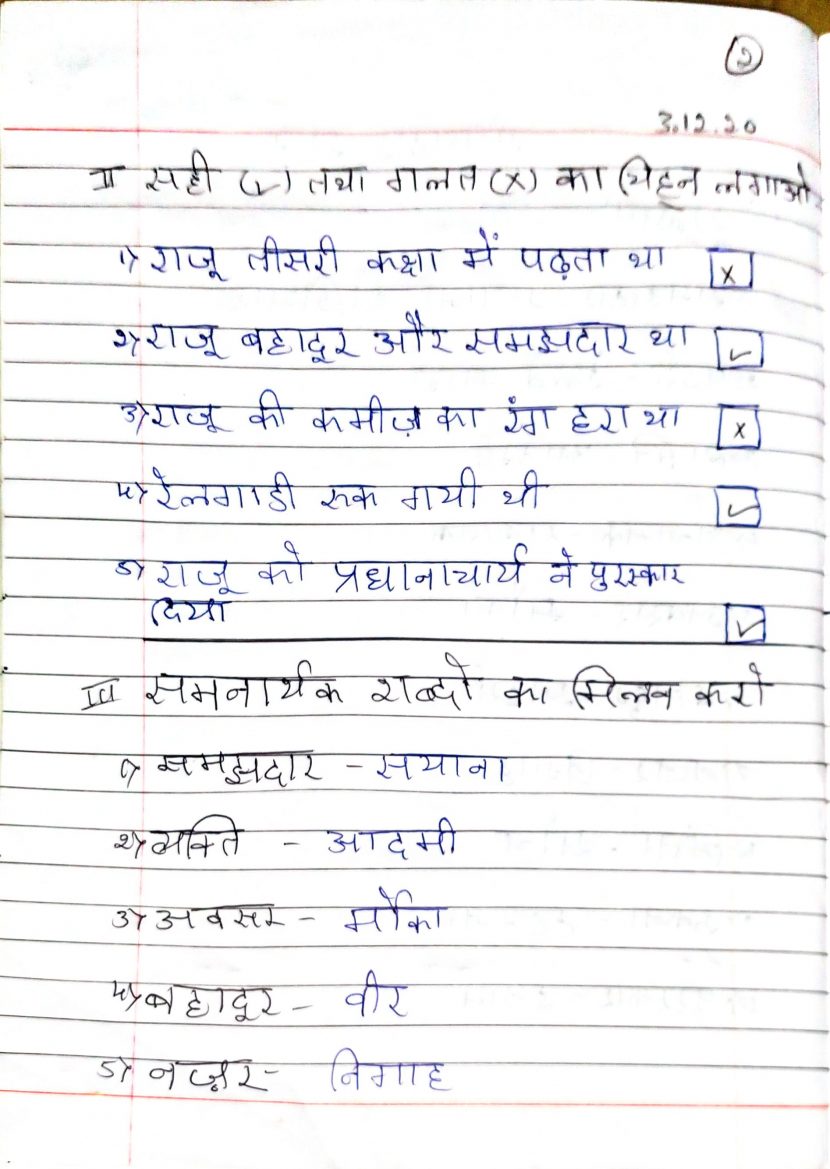 2
3.12.20
II सही (✓) तथा गलत (x) का चिहन लगाओ
1) राजू तीसरी कक्षा में पढ़ता था [x]
2) राजू बहादूर और समझदार था [✓]
3) राजू की कमीज़ का रंग हरा था [x]
4) रेलगाडी रूक गयी थी [✓]
5) राजू को प्रधानाचार्य ने पुरस्कार
दिया [✓]
III समनार्थक शब्दों का मिलन करो
1) समझदार - सयाना
2) व्यक्ति - आदमी
3) अवसर - मौका
4) बहादूर - वीर
5) नज़र - निगाह